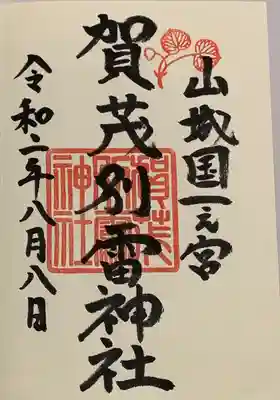 山城国一之宮
賀茂別雷神社
令和二年八月八日
賀茂別雷神社